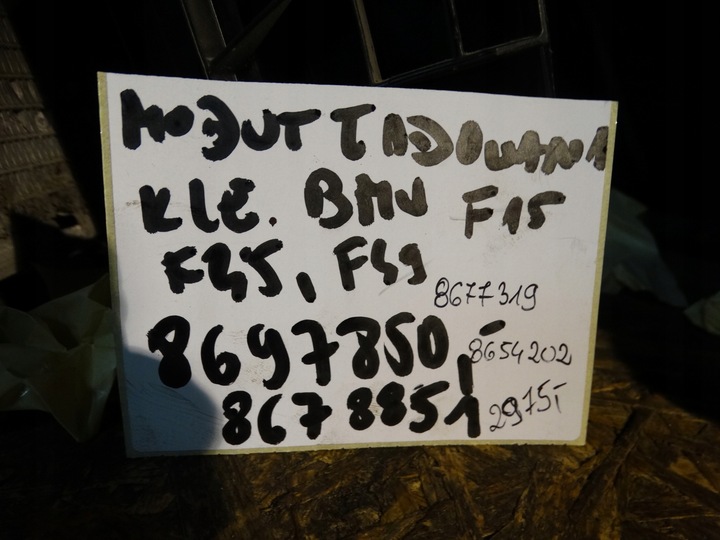 MODUŁ ŁADOWANIA
KLE. BMW F15
K35, F49
8677319
8697850,-
8654202
8678851
2975T